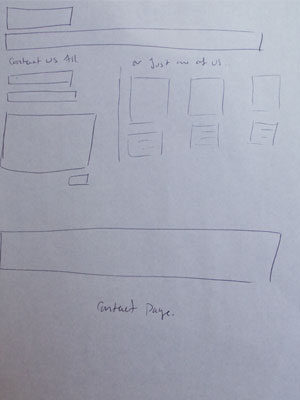 Contact us All
or Just one of us.
Contact Page.